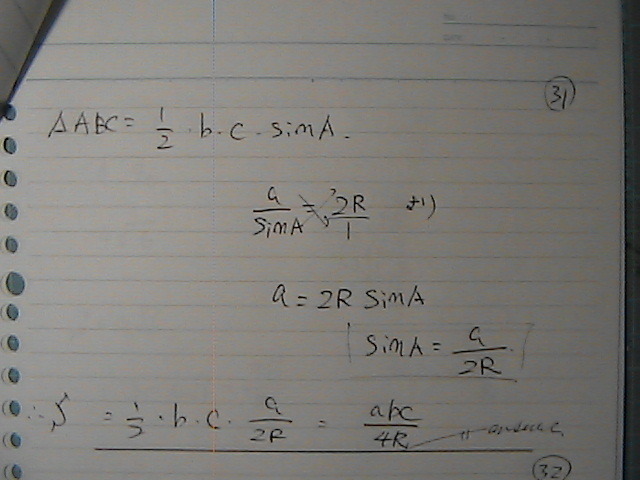 31
△ABC = 1/2 · b · c · sinA.
a/sinA = 2R/1
a = 2R sinA
sinA = a/2R
∴ S = 1/2 · b · c · a/2R = abc/4R
32